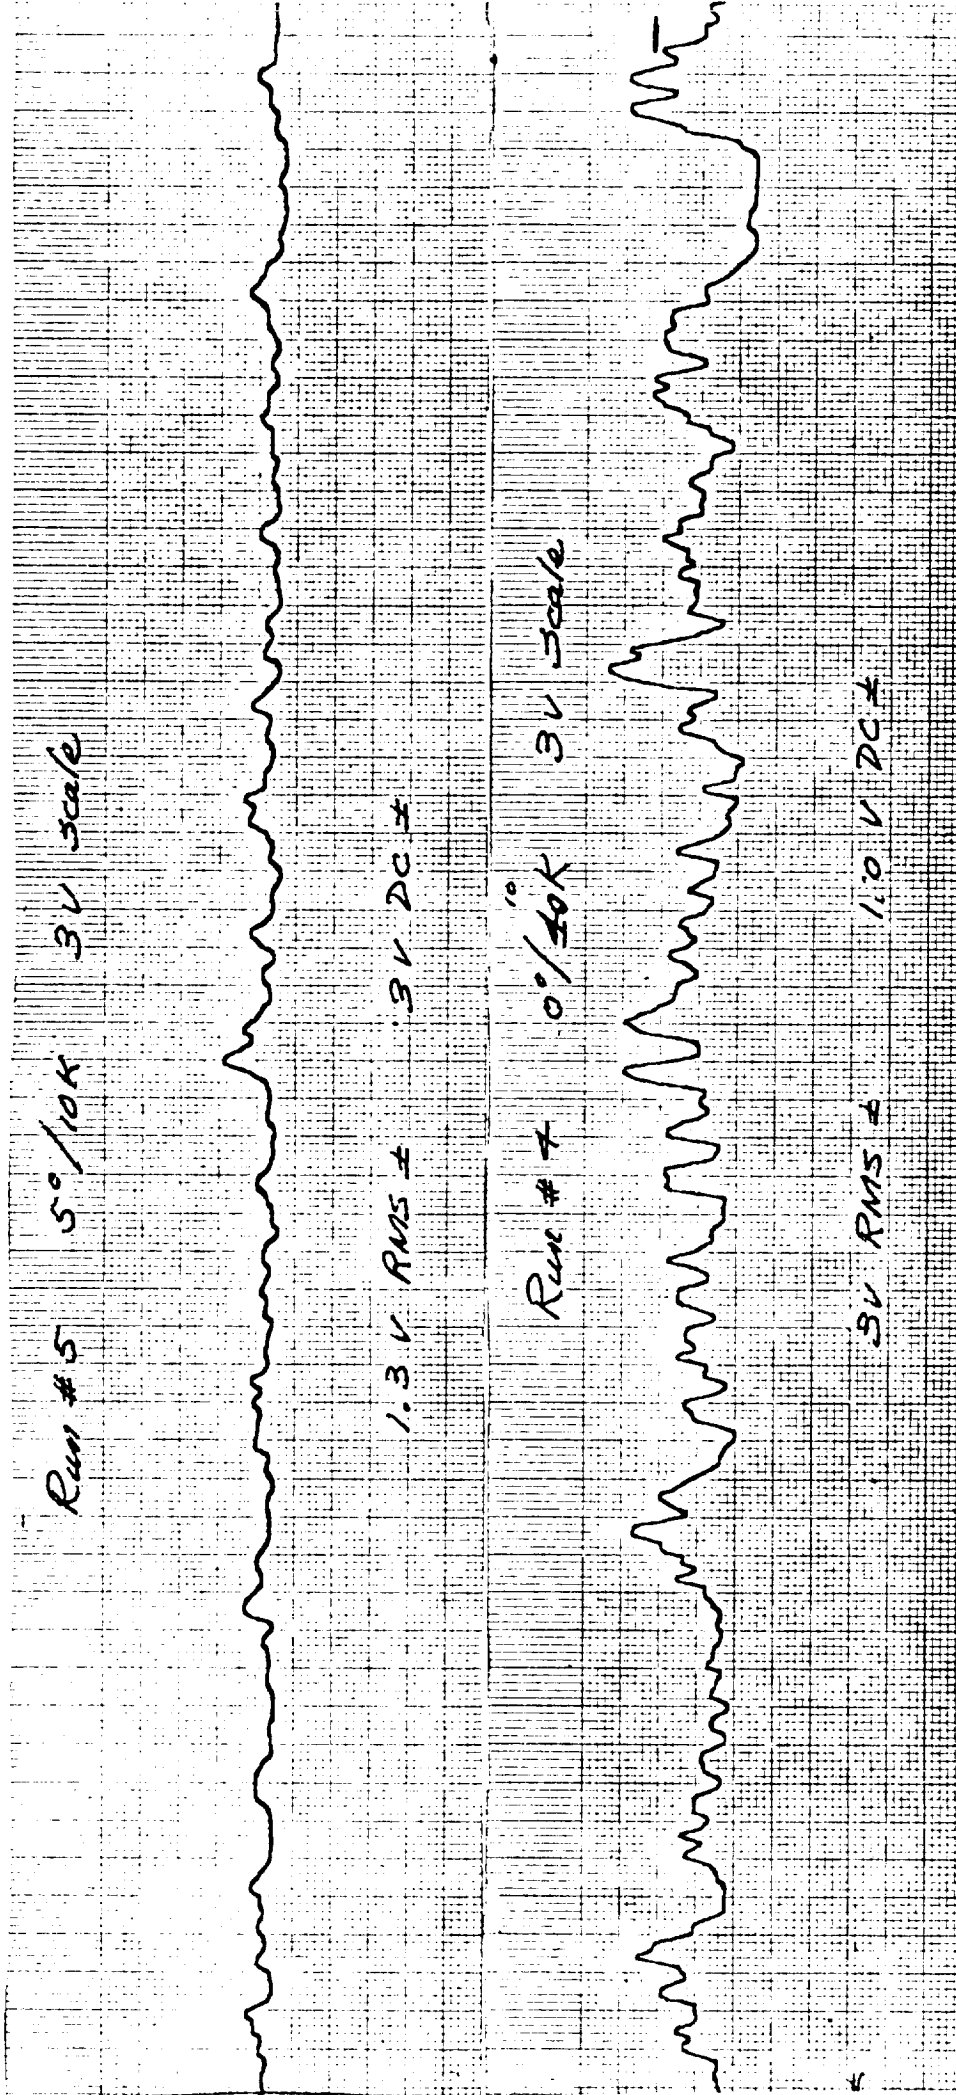 Run #5 5°/10K 3V scale
1.3 V RMS ± .3V DC ±
Run #4 0°/10K 3V scale
3V RMS ± 1.0 V DC ±